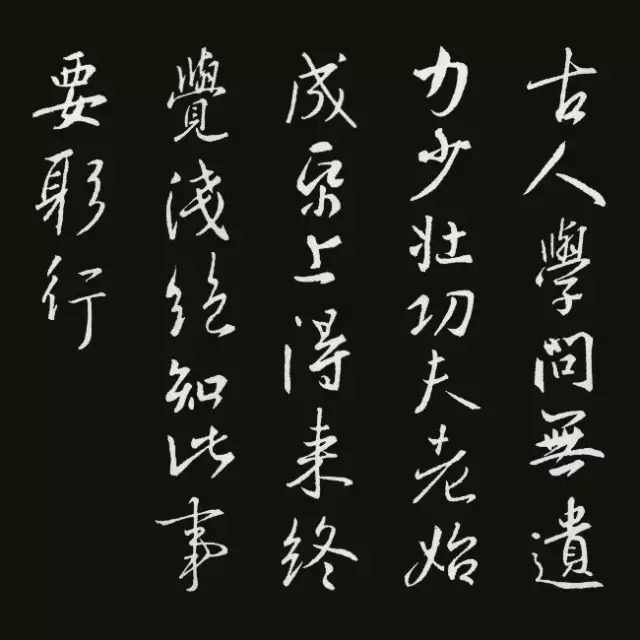 古人學問無遺
力少壯功夫老始
成紙上得来終
覺淺絕知此事
要躬行